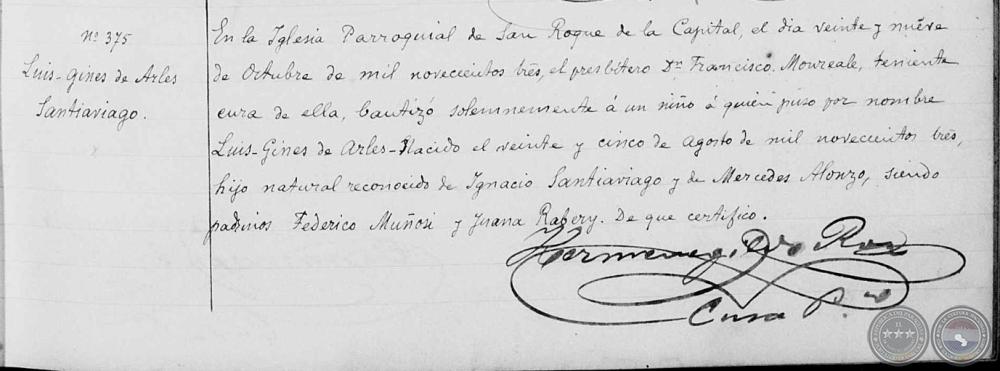 Nº 375
Luis-Gines de Arles
Santiaviago.
En la Iglesia Parroquial de San Roque de la Capital, el dia veinte y nueve
de Octubre de mil novecientos tres, el presbítero Dn Francisco Monreale, teniente
cura de ella, bautizó solemnemente á un niño á quien puso por nombre
Luis-Gines de Arles-Nacido el veinte y cinco de Agosto de mil novecientos tres,
hijo natural reconocido de Ignacio Santiaviago y de Mercedes Alonzo, siendo
padrinos Federico Muñosi y Juana Rabery. De que certifico.
Hermenegildo Roa
Cura